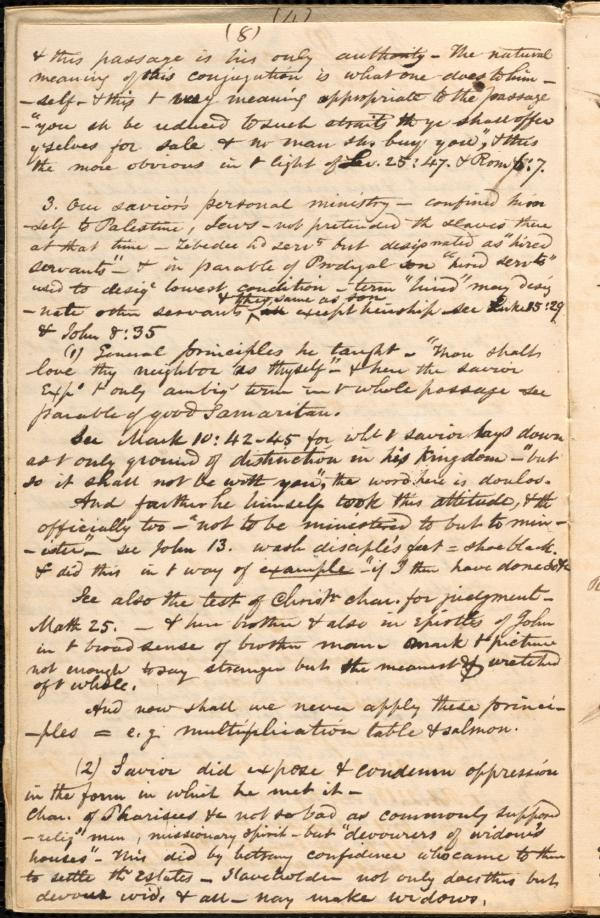 (8)
& this passage is his only authority - The natural
meaning of this conjugation is what one does to him-
-self - & this t very meaning appropriate to the passage
- "you sh be reduced to such straits th ye shall offer
yselves for sale & no man sh. buy you", & this
the more obvious in t light of Lev. 25:47. & Rom 6:7.
3. Our savior's personal ministry - confined him
-self to Palestine, Jews - not pretended th slaves there
at that time - Zebedee hd servts but designated as "hired
servants" - & in parable of Prodigal son "hired servts"
used to desigt lowest condition - term "hired" may desig
& they same as son
-nate other servants except heirship see Luke 15:29
& John 8:35
(1) General principles he taught - "Thou shalt
love thy neighbor as thyself" - & here the savior
Expd t only ambigs term in t whole passage see
parable of good Samaritan.
See Mark 10:42-45 for wht t savior lays down
as t only ground of distinction in his Kingdom - "but
so it shall not be with you", the word here is doulos.
And farther he himself took this attitude, & th
officially too - "not to be ministered to but to min-
-ister" - see John 13. wash disciple's feet = shoeblack.
& did this in t way of example - "if I then have done &c
See also the test of Christn char. for judgment -
Math 25. - & here brother & also in Epistles of John
in t broad sense of brother man mark t picture
not enough to say stranger but the meanest & wretched
of t whole.
And now shall we never apply these princi-
-ples = e.g. multiplication table & salmon.
(2) Savior did expose & condemn oppression
in the form in which he met it -
Char. of Pharisees &c not so bad as commonly supposed
- religs men, missionary spirit - but "devourers of widow's
houses" - This did by betraying confidence who came to them
to settle thr Estates - Slaveholder not only does this but
devours wid. & all - nay make widows.